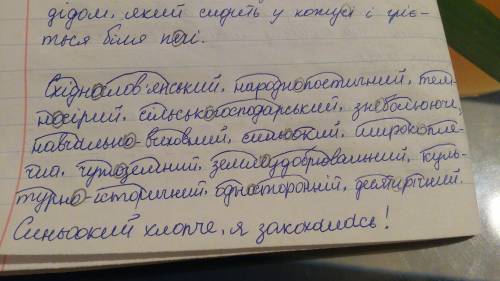 дідом, який сидить у кожусі і гріє-
ться біля печі.
Східнослов'янський, народнопоетичний, тем-
носірий, сільськогосподарський, знеболюючи,
навчально-виховний, синьоокий, широкопле-
ча, чужоземний, землеудобрювальний, куль-
турно-історичний, односторонній, десятирічний.
Синьоокий хлопче, я закохалась!